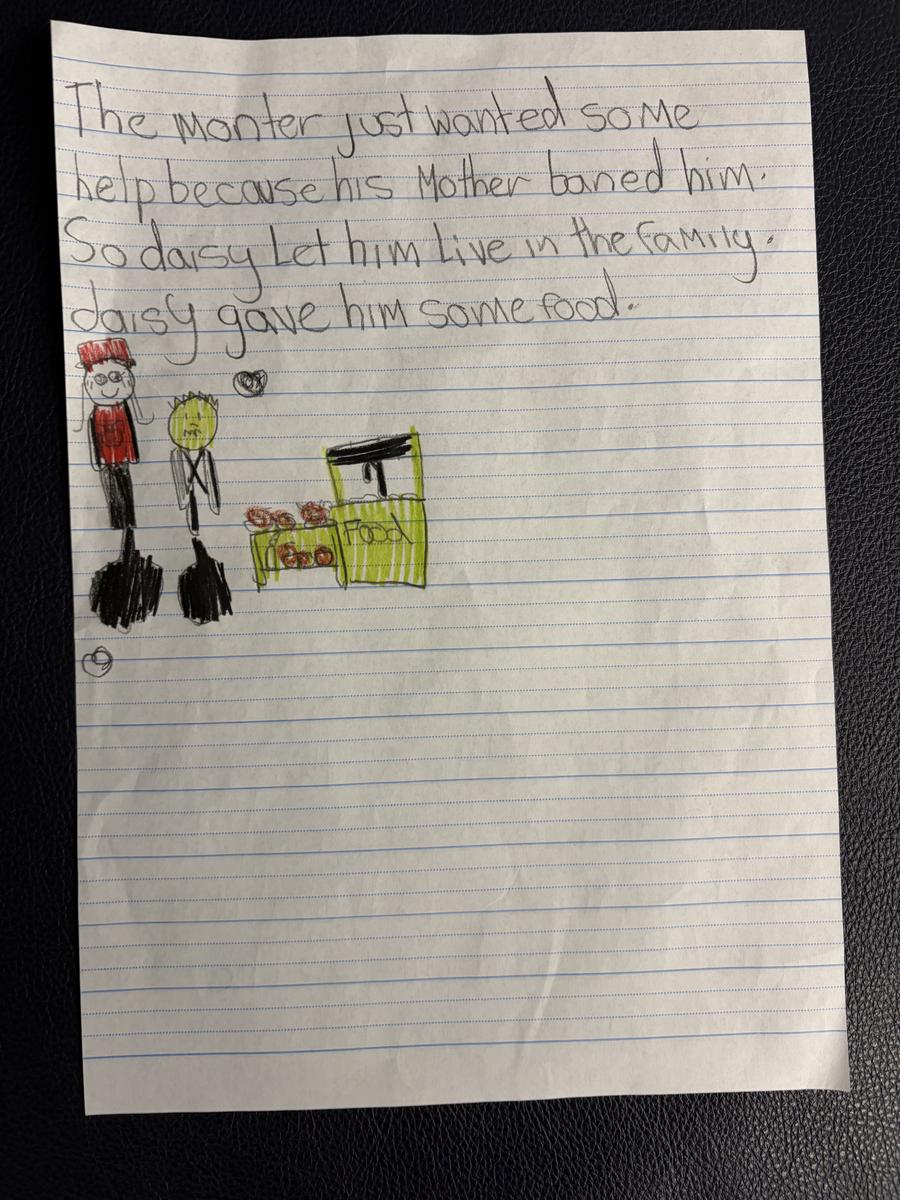 The monter just wanted some
help because his Mother baned him.
So daisy Let him Live in the family.
daisy gave him some food.
Food
9